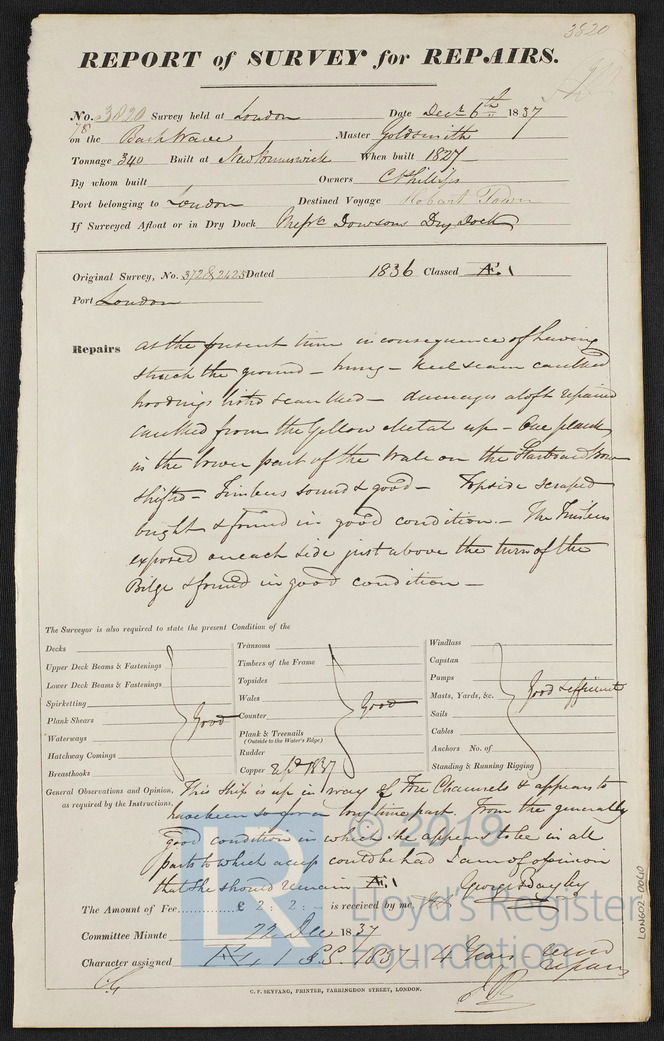 3820
REPORT of SURVEY for REPAIRS.
No. 3820 Survey held at London Date Decr 6th 1837
on the Bark Wave Master Goldsmith
Tonnage 340 Built at New Brunswick When built 1827
By whom built Owners C Phillips
Port belonging to London Destined Voyage Hobart Town
If Surveyed Afloat or in Dry Dock Messrs Dowsons Dry Dock
Original Survey, No. 372 & 2423 Dated 1836 Classed Æ.1
Port London
Repairs at the present time in consequence of having
struck the ground – hung – keel seam caulked
hoodings listed & caulked – damages aloft repaired
caulked from the Yellow Metal up – One plank
in the lower part of the Wale on the Starboard bow
shifted – Timbers sound & good – Topside scraped
bright & found in good condition. – The Timbers
exposed on each side just above the turn of the
Bilge & found in good condition –
The Surveyor is also required to state the present Condition of the
Decks
Upper Deck Beams & Fastenings
Lower Deck Beams & Fastenings
Spirketting
Plank Shears Good
Waterways
Hatchway Comings
Breasthooks
Transoms
Timbers of the Frame
Topsides
Wales
Counter Good
Plank & Treenails
(Outside to the Water's Edge)
Rudder
Copper 1837
Windlass
Capstan
Pumps
Masts, Yards, &c. Good & efficient
Sails
Cables
Anchors No. of
Standing & Running Rigging
General Observations and Opinion, This Ship is up in way of Fore Channels & appears to
as required by the Instructions, have been so for a long time past. From the generally
good condition in which she appears to be in all
parts to which access could be had I am of opinion
that she should remain Æ.1 George Bayley
The Amount of Fee............... £ 2 : 2 : – is received by me,
Committee Minute 22 Dec 1837
Character assigned Æ 1 S.S. 1837 – 4 Years
repairs
C. F. SEYFANG, PRINTER, FARRINGDON STREET, LONDON.
LR
© 2019
Lloyd's Register
Foundation
LON602-0040